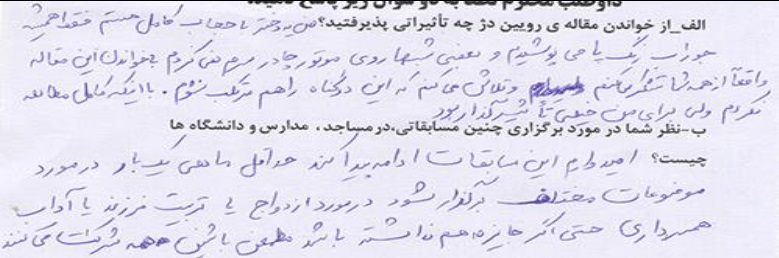 داوطلب محترم لطفا به دو سوال زیر پاسخ دهید:
الف_از خواندن مقاله ی رویین دژ چه تأثیراتی پذیرفتید؟ من یه دختر با حجاب کامل هستم فقط همیشه
جوراب رنگ پا می پوشیدم و بعضی شبها روی موتور چادر سرم نمی کردم با خواندن این مقاله
واقعاً از همه شما تشکر می کنم و تلاش می کنم که این دو گناه را هم مرتکب نشوم. با اینکه کامل مطالعه
نکردم ولی برای من خیلی تأثیرگذار بود
ب-نظر شما در مورد برگزاری چنین مسابقاتی،درمساجد، مدارس و دانشگاه ها
چیست؟ امیدوارم این مسابقات ادامه پیدا کند حداقل ماهی یک بار در مورد
موضوعات مختلف برگزار بشود در مورد ازدواج یا تربیت فرزند یا آداب
همسرداری حتی اگر جایزه هم نداشته باشد مطمئن باشین همه شرکت می کنند